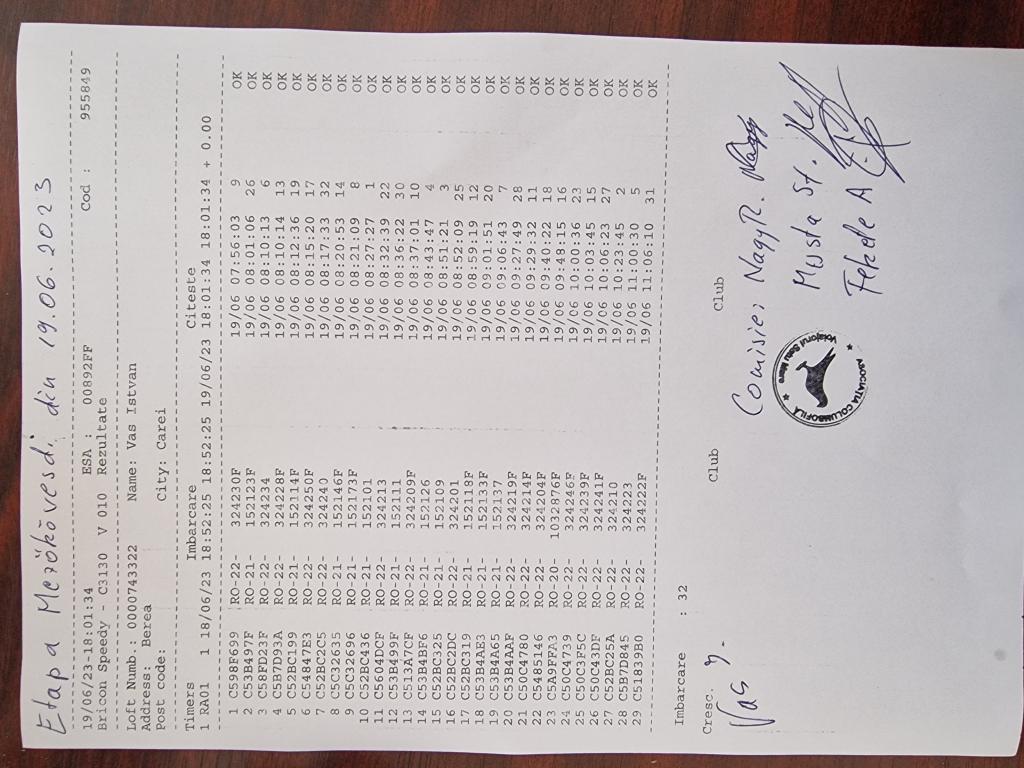 Etapa Mezőkövesdi din 19.06.2023
19/06/23-18:01:34 ESA : 00892FF Cod : 955849
Bricon Speedy - C3130 V 010 Rezultate
Loft Numb.: 0000743322 Name: Vas Istvan
Address: Berea
Post code: City: Carei
Timers Imbarcare Citeste
1 RA01 1 18/06/23 18:52:25 18:52:25 19/06/23 18:01:34 18:01:34 + 0.00
1 C598F699 RO-22- 324230F 19/06 07:56:03 9 OK
2 C53B497F RO-21- 152123F 19/06 08:01:06 26 OK
3 C58FD23F RO-22- 324234 19/06 08:10:13 6 OK
4 C5B7D93A RO-22- 324228F 19/06 08:10:14 13 OK
5 C52BC199 RO-21- 152114F 19/06 08:12:36 19 OK
6 C54847E3 RO-22- 324250F 19/06 08:15:20 17 OK
7 C52BC2C5 RO-22- 324240 19/06 08:17:33 32 OK
8 C5C32635 RO-21- 152146F 19/06 08:20:53 14 OK
9 C5C32696 RO-21- 152173F 19/06 08:21:09 8 OK
10 C52BC436 RO-21- 152101 19/06 08:27:27 1 OK
11 C5604DCF RO-22- 324213 19/06 08:32:39 22 OK
12 C53B499F RO-21- 152111 19/06 08:36:22 30 OK
13 C513A7CF RO-22- 324209F 19/06 08:37:01 10 OK
14 C53B4BF6 RO-21- 152126 19/06 08:43:47 4 OK
15 C52BC325 RO-21- 152109 19/06 08:51:21 3 OK
16 C52BC2DC RO-22- 324201 19/06 08:52:09 25 OK
17 C52BC319 RO-21- 152118F 19/06 08:59:19 12 OK
18 C53B4AE3 RO-21- 152133F 19/06 09:01:51 20 OK
19 C53B4A65 RO-21- 152137 19/06 09:06:43 7 OK
20 C53B4AAF RO-22- 324219F 19/06 09:27:49 28 OK
21 C50C4780 RO-22- 324214F 19/06 09:29:32 11 OK
22 C5485146 RO-22- 324204F 19/06 09:40:22 18 OK
23 C5A9FFA3 RO-20- 1032876F 19/06 09:48:15 16 OK
24 C50C4739 RO-22- 324246F 19/06 10:00:36 23 OK
25 C50C3F5C RO-22- 324239F 19/06 10:03:45 15 OK
26 C50C43DF RO-22- 324241F 19/06 10:06:23 27 OK
27 C52BC25A RO-22- 324210 19/06 10:23:45 2 OK
28 C5B7D845 RO-22- 324223 19/06 11:00:30 5 OK
29 C51839B0 RO-22- 324222F 19/06 11:06:10 31 OK
Imbarcare : 32
Cresc. Club Club
Vas J.
Comisie: Nagy R.
Musta St.
Fekete A
ASOCIATIA COLUMBOFILĂ
Voiajorul Satu Mare